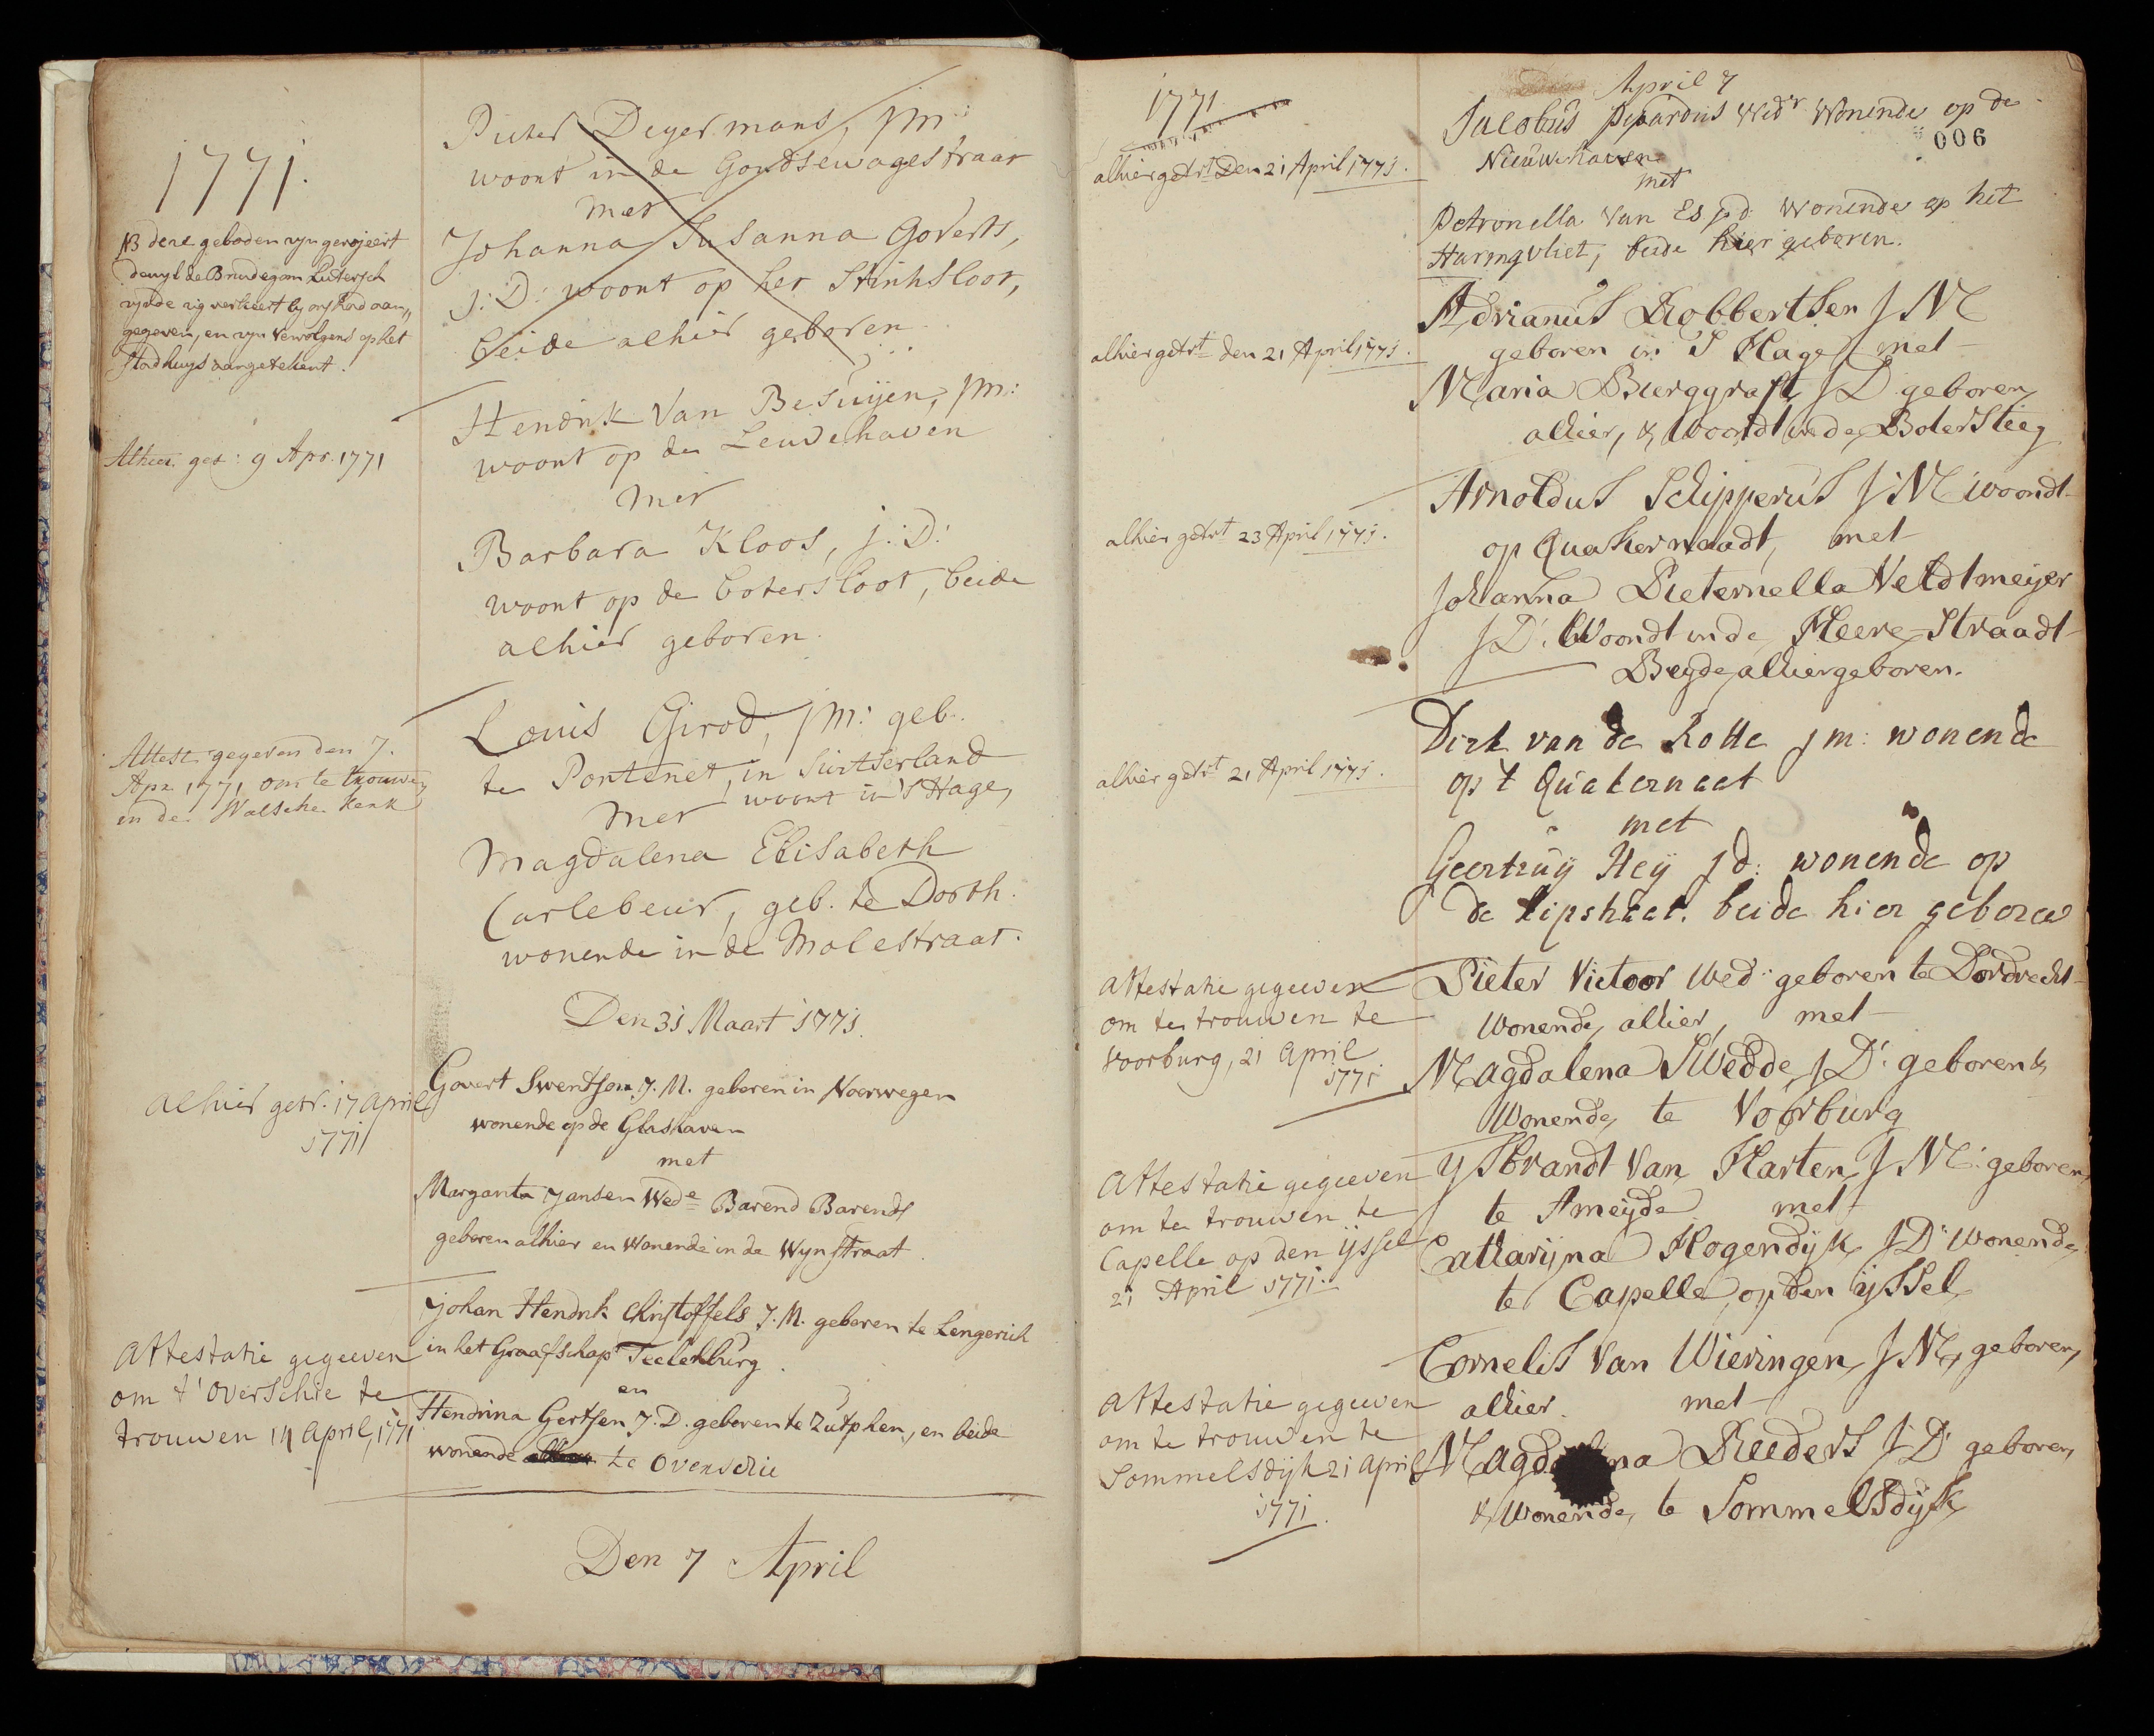 1771.
NB deze geboden zyn gerojeert
dewyl de Bruidegom Lutersch
zynde zig verkeert by ons had aan„
gegeven, en zyn vervolgens op het
Stadhuys aangetekent.
Pieter Deyermans, jm:
woont in de Goudsewagestraat
met
Johanna Susanna Goverts,
j: D: woont op het Stinksloot,
beide alhier geboren
Alhier get: 9 Apr. 1771
Hendrik Van Besuijen, jm:
woont op de Leuvehaven
met
Barbara Kloos, j: D:
woont op de botersloot, beide
alhier geboren.
Attest. gegeven den 7.
Apr. 1771 om te trouwen
in de Walsche kerk
Louis Girod, jm: geb.
te Pontenet, in Switserland
woont in 's Hage,
met
Magdalena Elisabeth
Carlebeur, geb. te Dorth.
wonende in de Molestraat.
Den 31 Maart 1771.
alhier getr. 17 april
1771
Govert Swentson J. M. geboren in Noorwegen
wonende op de Glashaven
met
Margarita Jansen Wede Barend Barends
geboren alhier en Wonende in de Wynstraat.
Attestatie gegeeven
om t' Overschie te
trouwen 14 April, 1771
Johan Hendrik Christoffels J. M. geboren te Lengerich
in het Graafschap Teelenburg.
en
Hendrina Gertsen J. D. geboren te Zutphen, en beide
wonende te Overschie
Den 7 April
1771
April 7
006
alhier getrt Den 21 April 1771.
Jacobus Wedr Wonende op de
Nieuwehaven
met
Petronella Van Es jd. Wonende op het
Haringvliet, beide hier geboren.
alhier getrt den 21 April 1771.
Adrianus Robbertsen J M
geboren in S Hage met
Maria Burggraft J D geboren
alhier, & Woondt in de Botersteeg
alhier getrt 23 April 1771.
Arnoldus Schipperus J: M woondt
op Quakernaadt, met
Johanna Pieternella Veldtmeijer
J D: Woondt in de Heere-Straadt
Beyde alhier geboren.
alhier getrt 21 April 1771.
Dirk van de Rotte jm: wonende
op 't Quakernaat
met
Geertruy Heij jd: wonende op
de kipstraat. beide hier geboren
Attestatie gegeeven
om te trouwen te
Voorburg, 21 April
1771
Pieter Victoor Wed: geboren te Dordrecht
Wonende alhier, met
Magdalena Swedde J D: geboren &
Wonende te Voorburg
Attestatie gegeeven
om te trouwen te
Capelle op den ijssel
21 April 1771.
ijsbrandt Van Harten J M: geboren
te Ameyde met
Catharijna Hogendijk J D: Wonende
te Capelle op den ijssel
Attestatie gegeeven
om te trouwen te
Sommelsdijk 21 April
1771.
Cornelis Van Wieringen J M, geboren
alhier. met
Reeders J D: geboren
& Wonende te Sommelsdijk